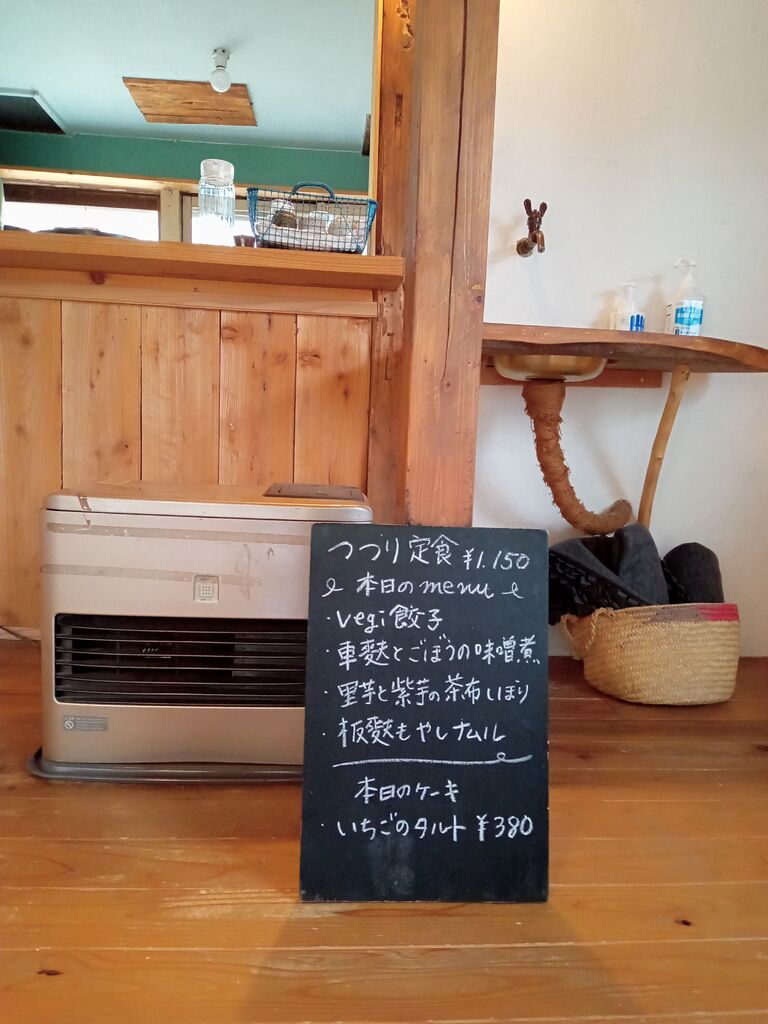 つづり定食 ¥1.150
本日のmenu
・vegi餃子
・車麩とごぼうの味噌煮
・里芋と紫芋の茶布しぼり
・板麩もやしナムル
本日のケーキ
・いちごのタルト ¥380